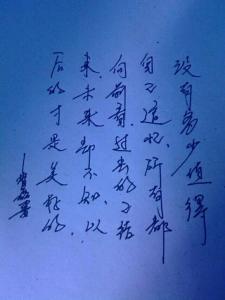 没有多少值得
自己追忆，所有都
向前看，过去的不
来，未来却不知，以
后的才是美好的。